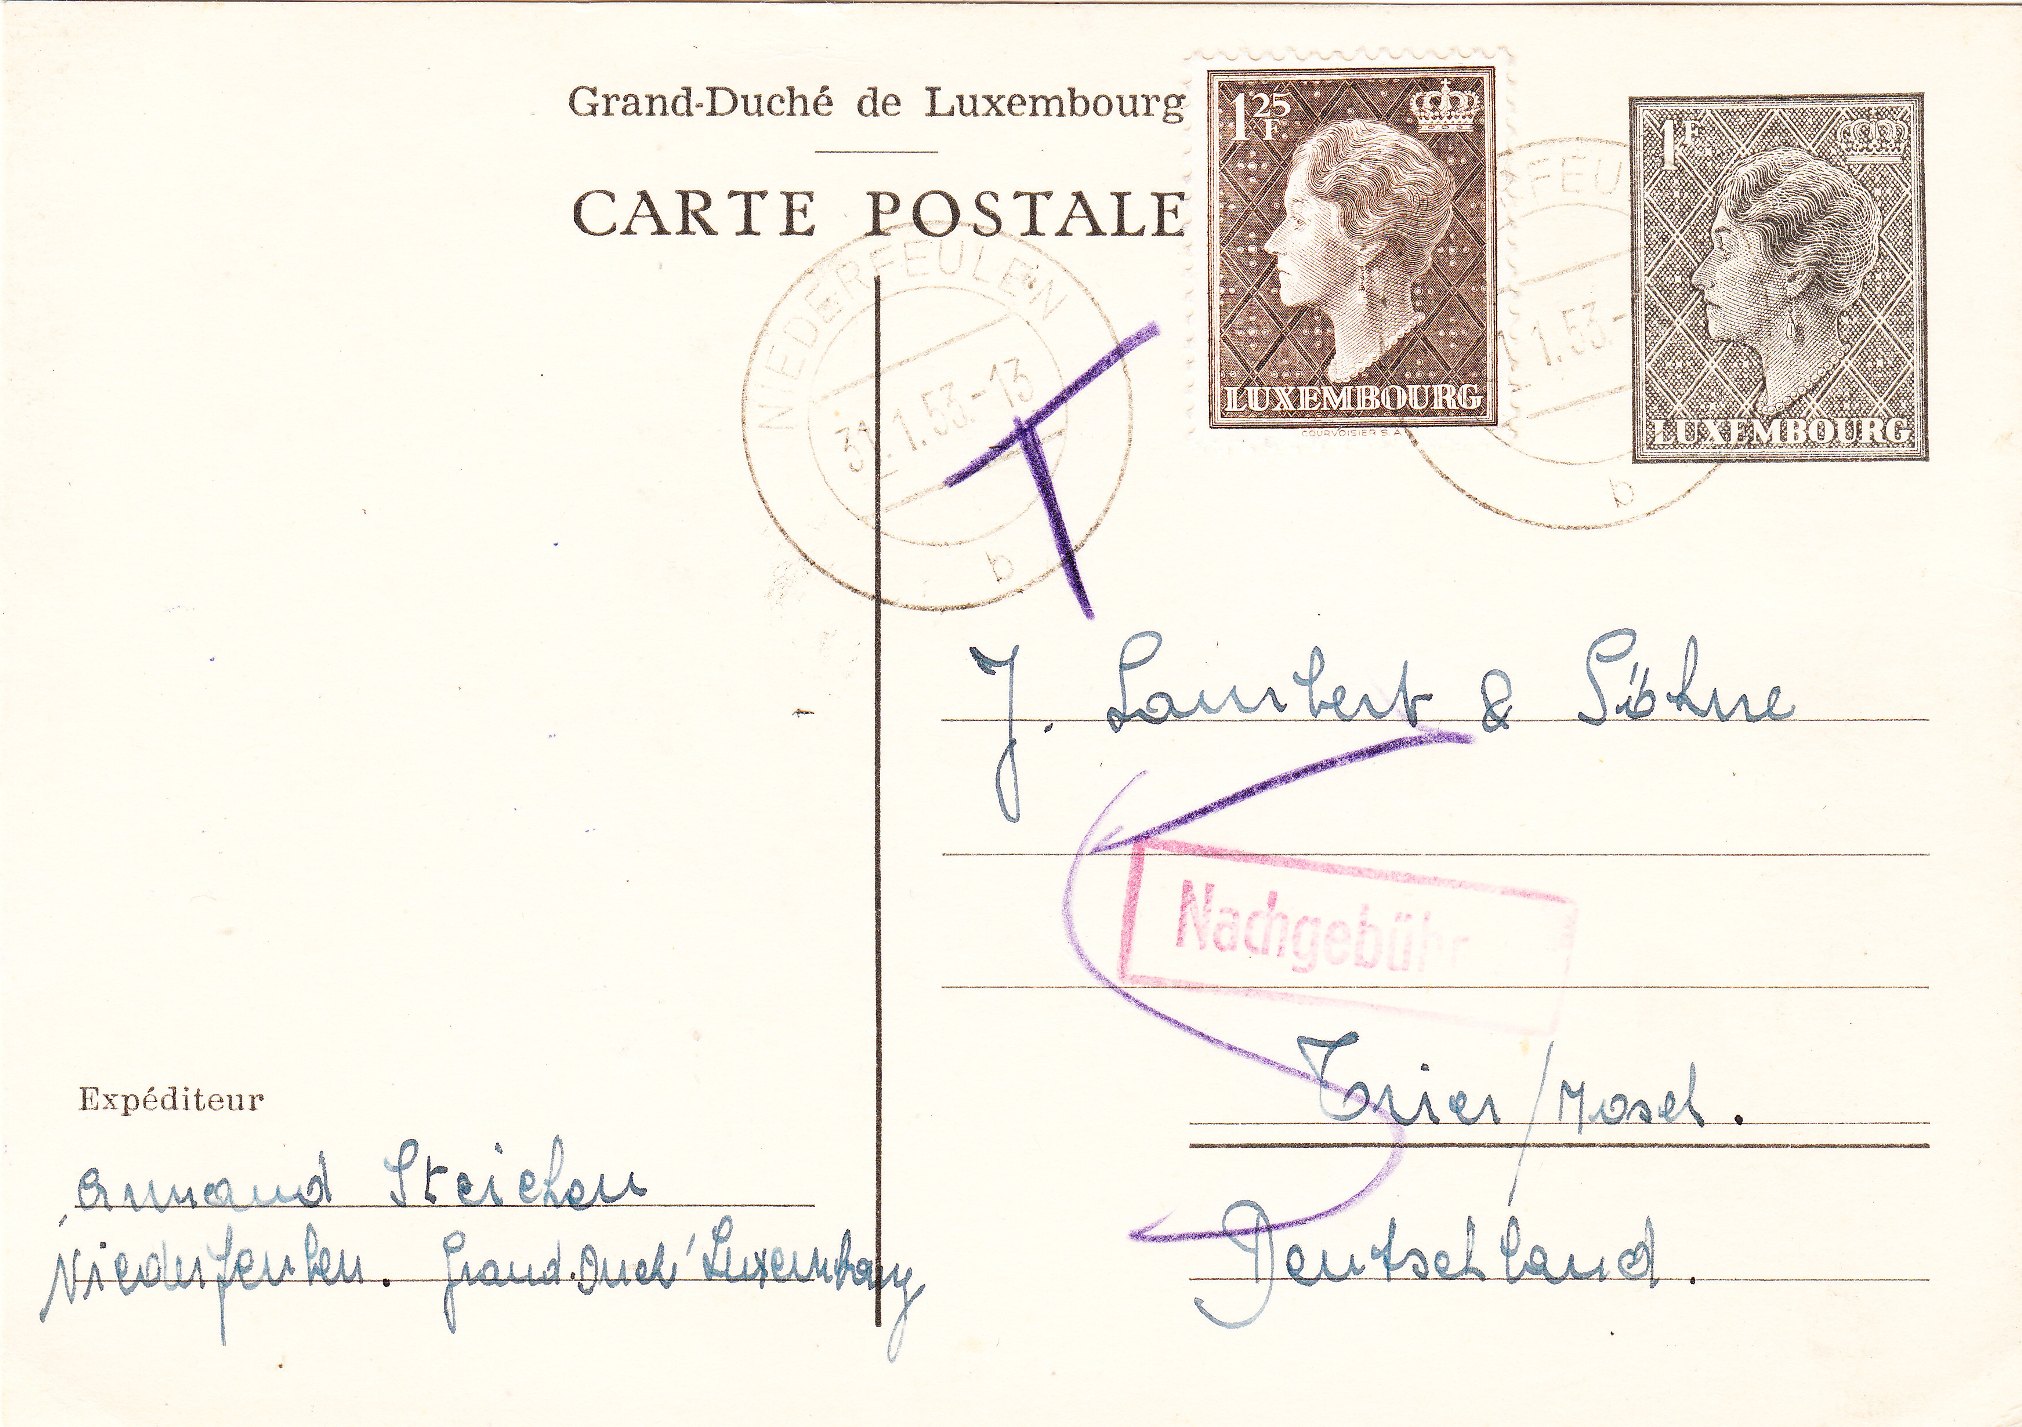 Grand-Duché de Luxembourg
CARTE POSTALE
1 25 F
LUXEMBOURG
COURVOISIER S.A.
1 F
LUXEMBOURG
NIEDERFEULEN
31.1.53.-13
b
FEU
1.53.-
b
T
J. Lambert & Söhne
Nachgebühr
Trier/Mosel.
Deutschland.
Expéditeur
Armand Steichen
Niederfeulen. Grand-Duché Luxembourg